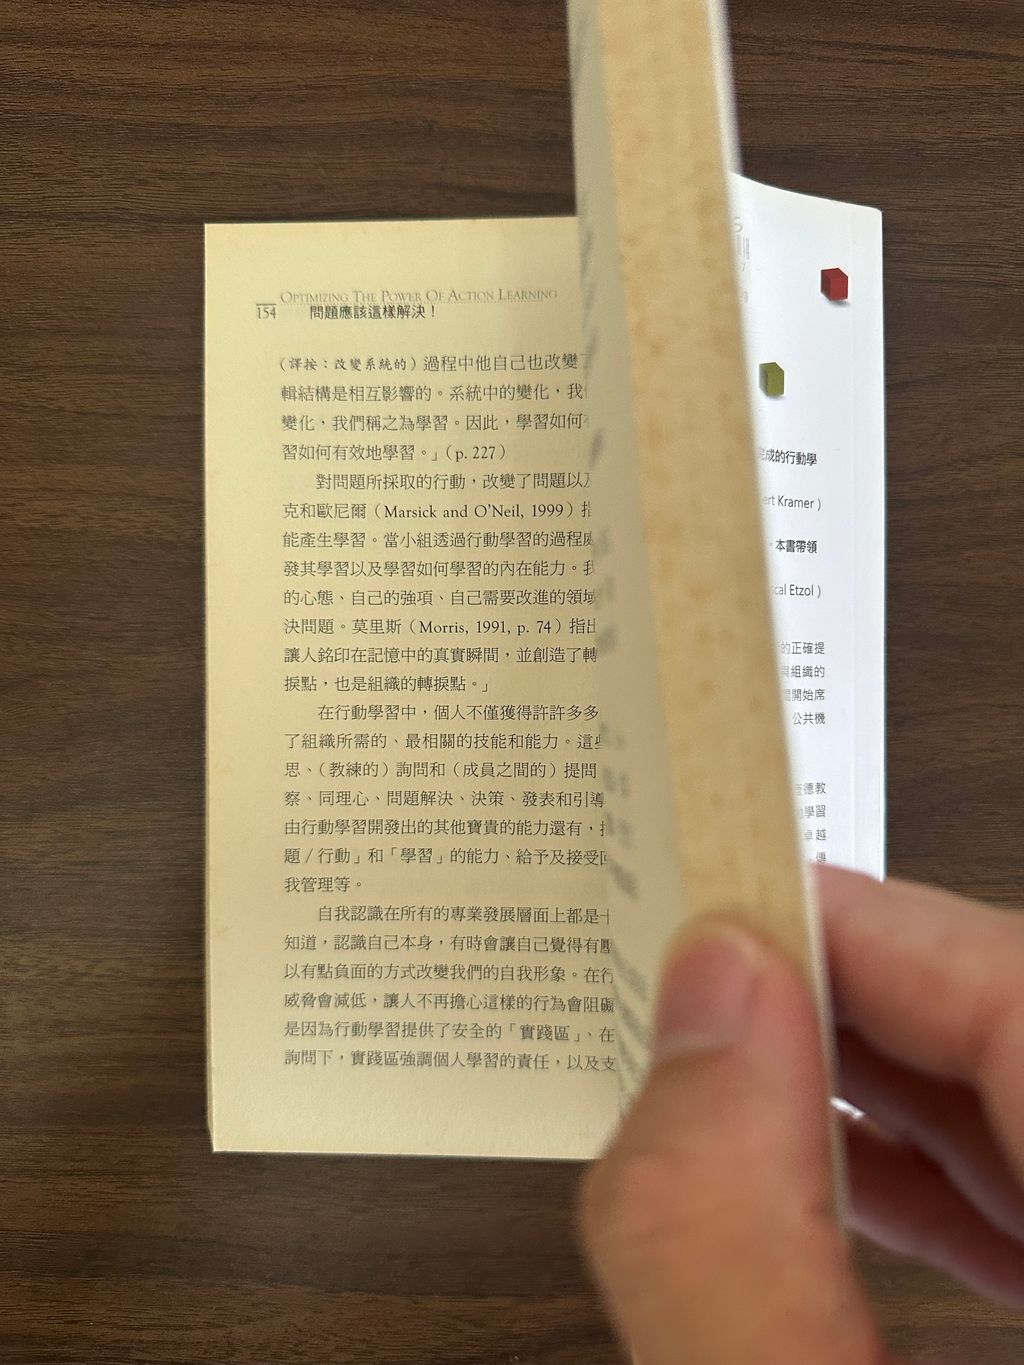 OPTIMIZING THE POWER OF ACTION LEARNING
154 問題應該這樣解決！
（譯按：改變系統的）過程中他自己也改變
輯結構是相互影響的。系統中的變化，我
變化，我們稱之為學習。因此，學習如何
習如何有效地學習。」（p. 227）
對問題所採取的行動，改變了問題以及
克和歐尼爾（Marsick and O'Neil, 1999）指
能產生學習。當小組透過行動學習的過程處
發其學習以及學習如何學習的內在能力。我
的心態、自己的強項、自己需要改進的領域
決問題。莫里斯（Morris, 1991, p. 74）指出
讓人銘印在記憶中的真實瞬間，並創造了轉
捩點，也是組織的轉捩點。」
在行動學習中，個人不僅獲得許許多多
了組織所需的、最相關的技能和能力。這些
思、（教練的）詢問和（成員之間的）提問
察、同理心、問題解決、決策、發表和引導
由行動學習開發出的其他寶貴的能力還有，
題／行動」和「學習」的能力、給予及接受回
我管理等。
自我認識在所有的專業發展層面上都是十
知道，認識自己本身，有時會讓自己覺得有壓
以有點負面的方式改變我們的自我形象。在行
威脅會減低，讓人不再擔心這樣的行為會阻礙
是因為行動學習提供了安全的「實踐區」、在
詢問下，實踐區強調個人學習的責任，以及支
完成的行動學
ert Kramer）
。本書帶領
scal Etzol）
的正確提
與組織的
開始席
公共機
德教
學習
卓越
傳